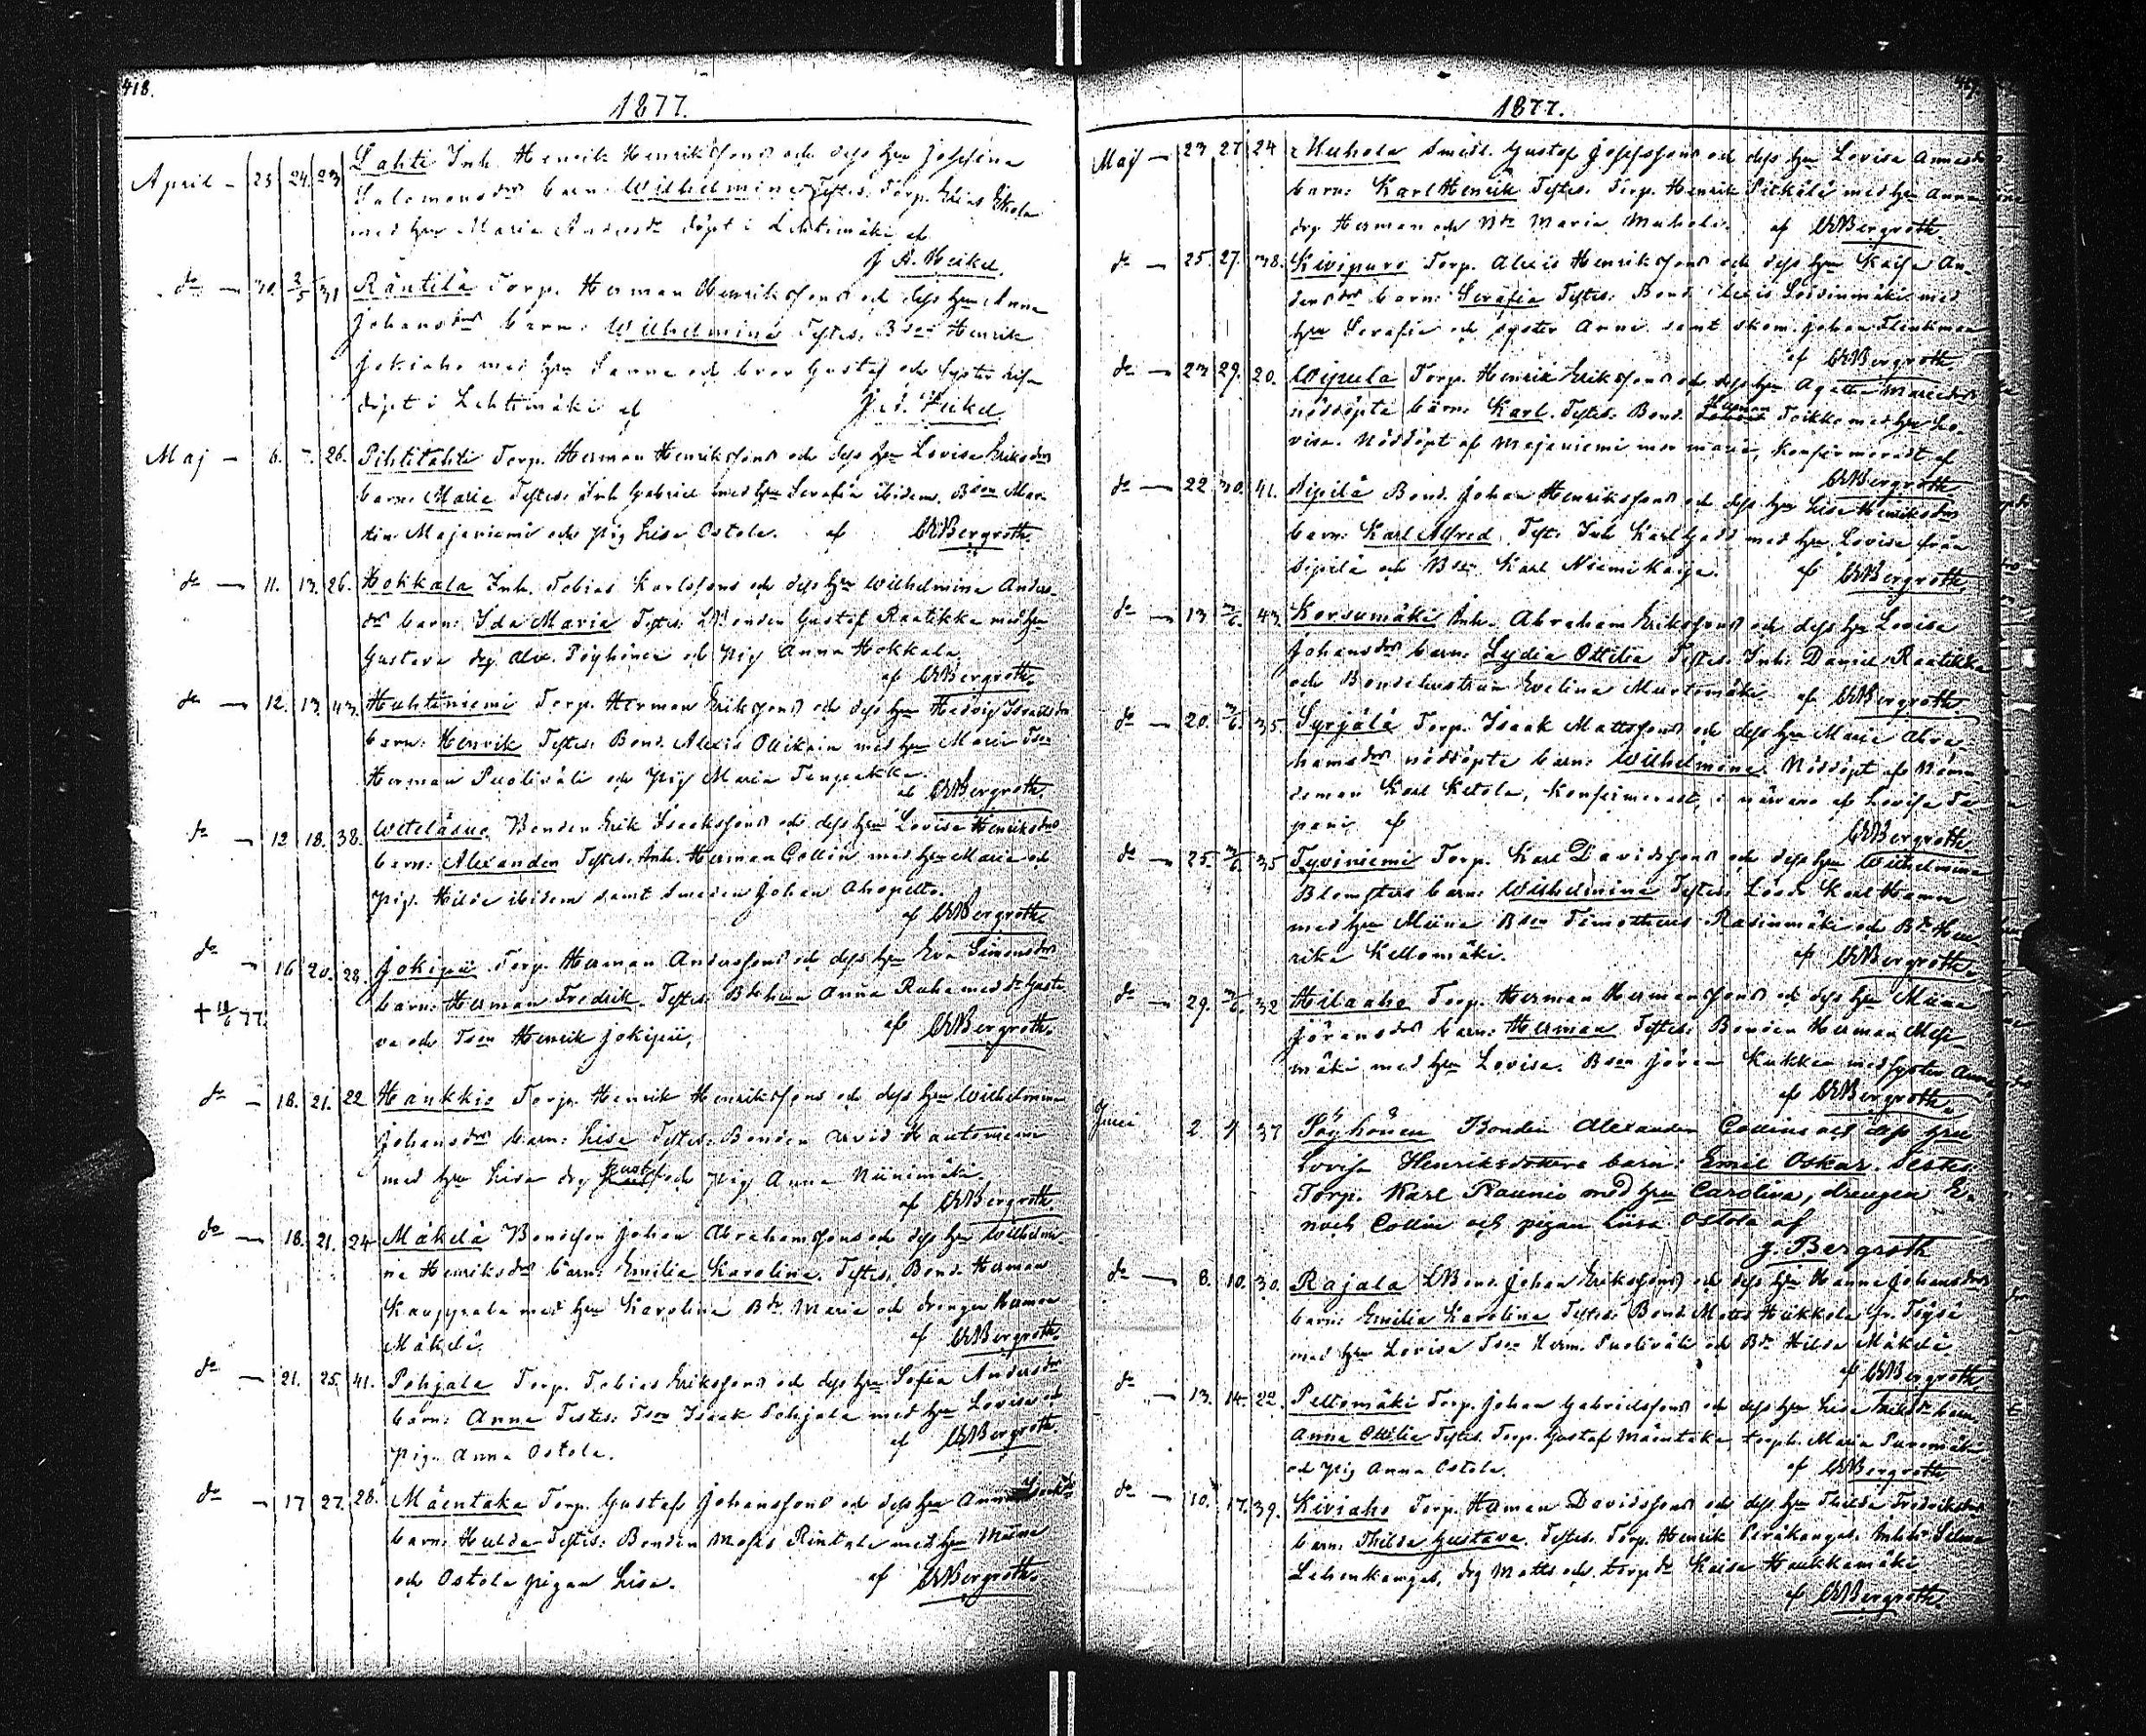 418.
1877.
April - 23 24. 23 Lahti Inh. Henrik Henriksson och dess hu Josefina
Salomonsdr barn: Wilhelmina Testes: Torp. Elias Ekola
med hu Maria Andersdr döpt i Lehtimäki af
J A. Heikel.
do - 30. 2/5 31 Räntilä Torp. Herman Henriksson och dess hu Anna
Johansdr barn: Wilhelmina Testes: Bson Henrik
Jokiaho med hu Sanna och bror Gustaf och syster
döpt i Lehtimäki af Heikel
Maj - 6. - 26. Pihlilahti Torp. Herman Henriksson och dess hu Lovisa Eriksdr
barn: Maria Testes: Inh Gabriel med hu Serafia ibidem, Bson Mar-
tin Majaniemi och pig Lisa Ostola. af Bergroth.
do - 11. 13. 26. Hokkala Inh. Tobias Karlsson och dess hu Wilhelmina Anders-
dr barn: Ida Maria Testes: Bonden Gustaf Raatikka med hu
Gustava drg Alex. Pöyhönen och pig Anna Hokkala
af Bergroth.
do - 12. 13. 43. Huhtiniemi Torp. Herman Eriksson och dess hu Hedvig Israelsdr
barn: Henrik Testes: Bond. Alexis Ollikain med hu Maria Tson
Herman Puolivali och pig Maria
af Bergroth.
do - 12 18. 38. Bonden Erik Isaaksson och dess hu Lovisa Henriksdr
barn: Alexander Testes: Inh. Herman Collin med hu Maria och
pig. Hilda ibidem samt Smeden Johan Ahopelto.
af Bergroth
do - 16 20. 28. Jokipii Torp. Herman Andersson och dess hu Eva Simonsdr
barn: Herman Fredrik. Testes: Anna Ruha med dr Gusta-
+ 18/6 77. va och Tson Henrik Jokipii. af Bergroth.
do - 18. 21. 22 Hankkio Torp. Henrik Henriksson och dess hu Wilhelmina
Johansdr barn: Lisa Testes: Bonden Hautaniemi
med hu Lisa drg Gustaf och pig Anna Niinimäki
af Bergroth.
do - 18. 21. 24 Mäkelä Bondson Johan Abrahamsson och dess hu Wilhelmi-
na Henriksdr barn: Emilia Karolina. Testes: Bond. Herman
Kauppala med hu Karolina Bdr Maria och drengen Herman
Mäkelä. af Bergroth.
do - 21. 25. 41. Pohjala Torp. Tobias Eriksson och dess hu Sofia Andersdr
barn: Anna Testes: Tson Isaak Pohjala med hu Lovisa och
pig. Anna Ostola. af Bergroth.
do - 17 27. 28. Mäentaka Torp. Gustaf Johansson och dess hu Anna
barn: Hulda Testes: Bonden Moses Rintala med hu Miina
och Ostola pigan Lisa. af Bergroth.
1877.
Maj - 23 27. 24 Muhola Gustaf Josefsson och dess hu Lovisa
barn: Karl Henrik Testes: Torp. Henrik Pitkälä med hu Anna
drg Herman och Maria Muhola. af Bergroth.
do - 25. 27. 38. Kivipuro Torp. Alexis Henriksson och dess hu Kajsa An-
dersdr barn: Serafia Testes: Bond Alexis med
hu Serafia och syster Anna samt skom. Johan Flinkman
af Bergroth.
do - 23 29. 20. Wipula Torp. Henrik Eriksson och dess hu Agatha
nöddöpta barn: Karl. Testes: Bond. Herman Teikko med hu Lo-
visa. Nöddöpt af Majaniemi mor Maria, Konfirmeradt af
Bergroth
do - 22 30. 41. Sipilä Bond. Johan Henriksson och dess hu Lisa Henriksdr
barn: Karl Alfred Test: Inh Karl Gadd med hu Lovisa från
Sipilä och Bson Karl Niemikarja. af Bergroth.
do - 13 3/6. 43. Korsumäki Inh. Abraham Eriksson och dess hu Lovisa
Johansdr barn: Lydia Ottilia Testes: Inh: Daniel Raatikka
och Bondehustrun Evelina Murtomäki. af Bergroth.
do - 20. 3/6. 35 Syrjälä Torp. Isaak Mattsson och dess hu Maria Abra-
hamsdr nöddöpta barn: Wilhelmina. Nöddöpt af Näm-
deman Karl Ketola, Konfirmeradt, i närvaro af Lovisa Ta-
pani, af Bergroth.
do - 25. 3/6. 35 Tyviniemi Torp. Karl Davidsson och dess hu Wilhelmina
Blomster barn: Wilhelmina Testes: Karl Hamn
med hu Miina Bson Timotheus Rasinmäki och Bdr Hen-
rika Kellomäki. af Bergroth.
do - 29. 3/6. 32 Hilaaho Torp. Herman Hermansson och dess hu Miina
Jöransdr barn: Herman Testes: Bonden Herman
mäki med hu Lovisa. Bson Jöran Kukkea med syster Anna
af Bergroth.
Juni 2 4 37 Pöyhönen Bonden Alexander Collins och dess hru
Lovisa Henriksdotters barn: Emil Oskar. Testes
Torp. Karl Raunio med hru Carolina, drengen E-
noch Collin och pigan Liisa Ostola af
g. Bergroth
do - 8. 10. 30. Rajala Bond. Johan Eriksson och dess hu Hanna Johansdr
barn: Emilia Karolina Testes: Bond. Matts Heikkola fr. Töysä
med hu Lovisa Tson Herm. Puolivali och Bdr Hilda Mäkelä
af Bergroth.
do - 13. 14. 22. Peltomäki Torp. Johan Gabrielsson och dess hu Lisa barn
Anna Ottilia Testes. Torp. Gustaf Mäentaka, torph. Maria Puromäki
och pig Anna Ostola. af Bergroth
do - 10. 17. 39. Kiviaho Torp. Herman Davidsson och dess hu Thilda Fredriksdr
barn: Thilda Gustava. Testes. Torp. Henrik Peräkangas. Selma
Lehenkangas, drg Matts och torpdr Kaisa Haukkamäki
af Bergroth.